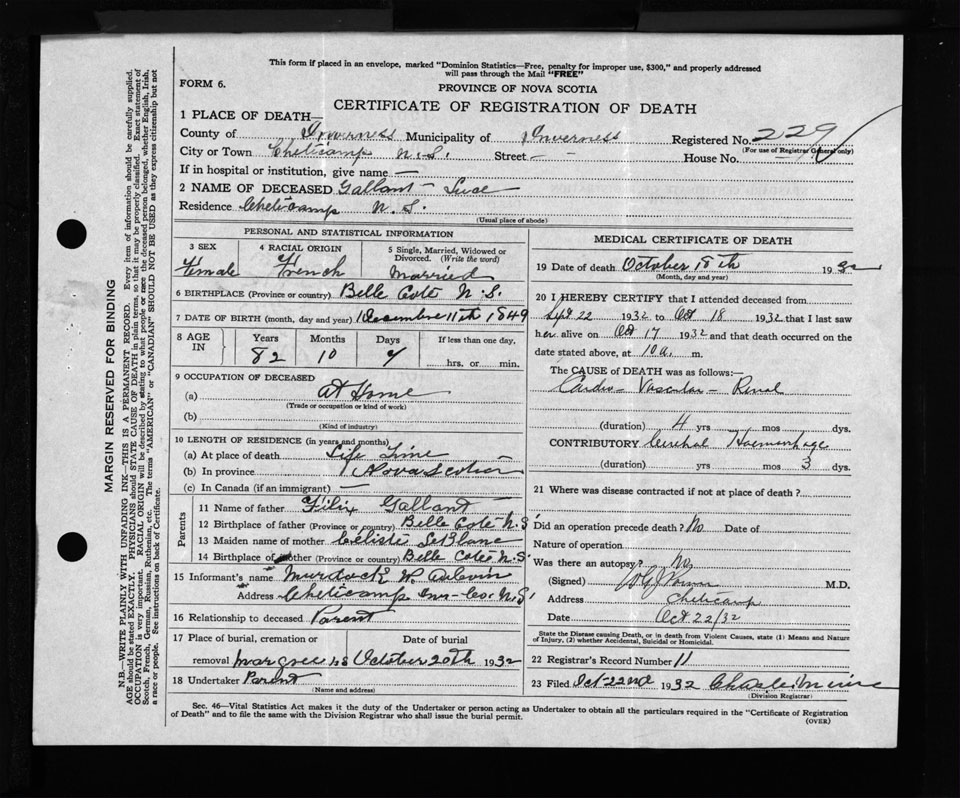 This form if placed in an envelope, marked "Dominion Statistics—Free, penalty for improper use, $300," and properly addressed
will pass through the Mail "FREE"
FORM 6.
PROVINCE OF NOVA SCOTIA
CERTIFICATE OF REGISTRATION OF DEATH
1 PLACE OF DEATH—
County of Inverness Municipality of Inverness Registered No. 229
(For use of Registrar General only)
City or Town Cheticamp N.S. Street — House No. —
If in hospital or institution, give name —
2 NAME OF DECEASED Gallant - Luce
Residence Cheticamp N.S.
(Usual place of abode)
PERSONAL AND STATISTICAL INFORMATION
3 SEX Female
4 RACIAL ORIGIN French
5 Single, Married, Widowed or Divorced. (Write the word) Married
6 BIRTHPLACE (Province or country) Belle Cote N.S.
7 DATE OF BIRTH (month, day and year) December 11th 1849
8 AGE IN Years 82 Months 10 Days 7 If less than one day, hrs. or min.
9 OCCUPATION OF DECEASED
(a) At Home
(Trade or occupation or kind of work)
(b)
(Kind of industry)
10 LENGTH OF RESIDENCE (in years and months)
(a) At place of death Life Time
(b) In province Nova Scotia
(c) In Canada (if an immigrant) —
Parents
11 Name of father Filix Gallant
12 Birthplace of father (Province or country) Belle Cote N.S
13 Maiden name of mother Celiste LeBlanc
14 Birthplace of mother (Province or country) Belle Cote N.S.
15 Informant's name Murdock W.
Address Cheticamp Inv-Co. N.S.
16 Relationship to deceased Parent
17 Place of burial, cremation or removal Margree N.S Date of burial October 20th 1932
18 Undertaker Parent
(Name and address)
MEDICAL CERTIFICATE OF DEATH
19 Date of death October 18th 1932
(Month, day and year)
20 I HEREBY CERTIFY that I attended deceased from
Sept 22 1932 to Oct 18 1932 that I last saw
her alive on Oct 17 1932 and that death occurred on the
date stated above, at 10 a. m.
The CAUSE of DEATH was as follows:—
Cardio - Vascular - Renal
(duration) 4 yrs mos dys.
CONTRIBUTORY Cerebral Haemorrhage
(duration) yrs mos 3 dys.
21 Where was disease contracted if not at place of death?
Did an operation precede death? No Date of
Nature of operation
Was there an autopsy? No
(Signed) M.D.
Address Cheticamp
Date Oct 22/32
State the Disease causing Death, or in death from Violent Causes, state (1) Means and Nature
of Injury, (2) whether Accidental, Suicidal or Homicidal.
22 Registrar's Record Number 11
23 Filed Oct-22nd 1932
(Division Registrar)
Sec. 46—Vital Statistics Act makes it the duty of the Undertaker or person acting as Undertaker to obtain all the particulars required in the "Certificate of Registration
of Death" and to file the same with the Division Registrar who shall issue the burial permit.
(OVER)
MARGIN RESERVED FOR BINDING
N.B.—WRITE PLAINLY WITH UNFADING INK—THIS IS A PERMANENT RECORD. Every item of information should be carefully supplied.
AGE should be stated EXACTLY. PHYSICIANS should STATE CAUSE OF DEATH in plain terms, so that it may be properly classified. Exact statement of
OCCUPATION is very important. RACIAL ORIGIN will be described by stating to what people or race the deceased person belonged, whether English, Irish,
Scotch, French, German, Russian, Ruthenian, etc. The terms "AMERICAN" or "CANADIAN" SHOULD NOT BE USED as they express citizenship but not
a race or people. See instructions on back of Certificate.